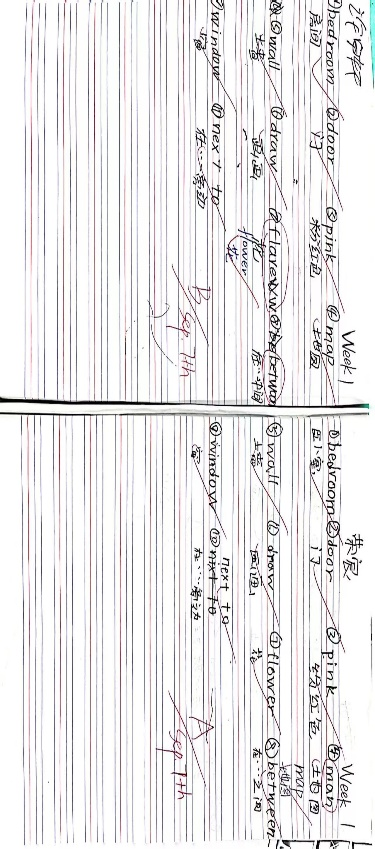 Week 1
①bedroom ②door ③pink ④map
房间 门 粉红色 地图
⑤wall ⑥draw
土墙 画画 花 flower 在…中间
⑨window ⑩next to
窗 在…旁边
B
Sep 7th
Week 1
①bedroom ②door ③pink ④man
卧室 门 粉红色 土也图
map
地图
⑤wall ⑥draw ⑦flower ⑧between
土墙 画画 花 在…之间
next to
⑨window ⑩next to
窗 在…旁边
A
Sep 7th